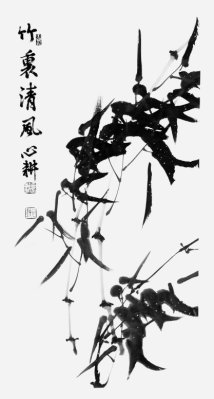 竹裏清風
心耕